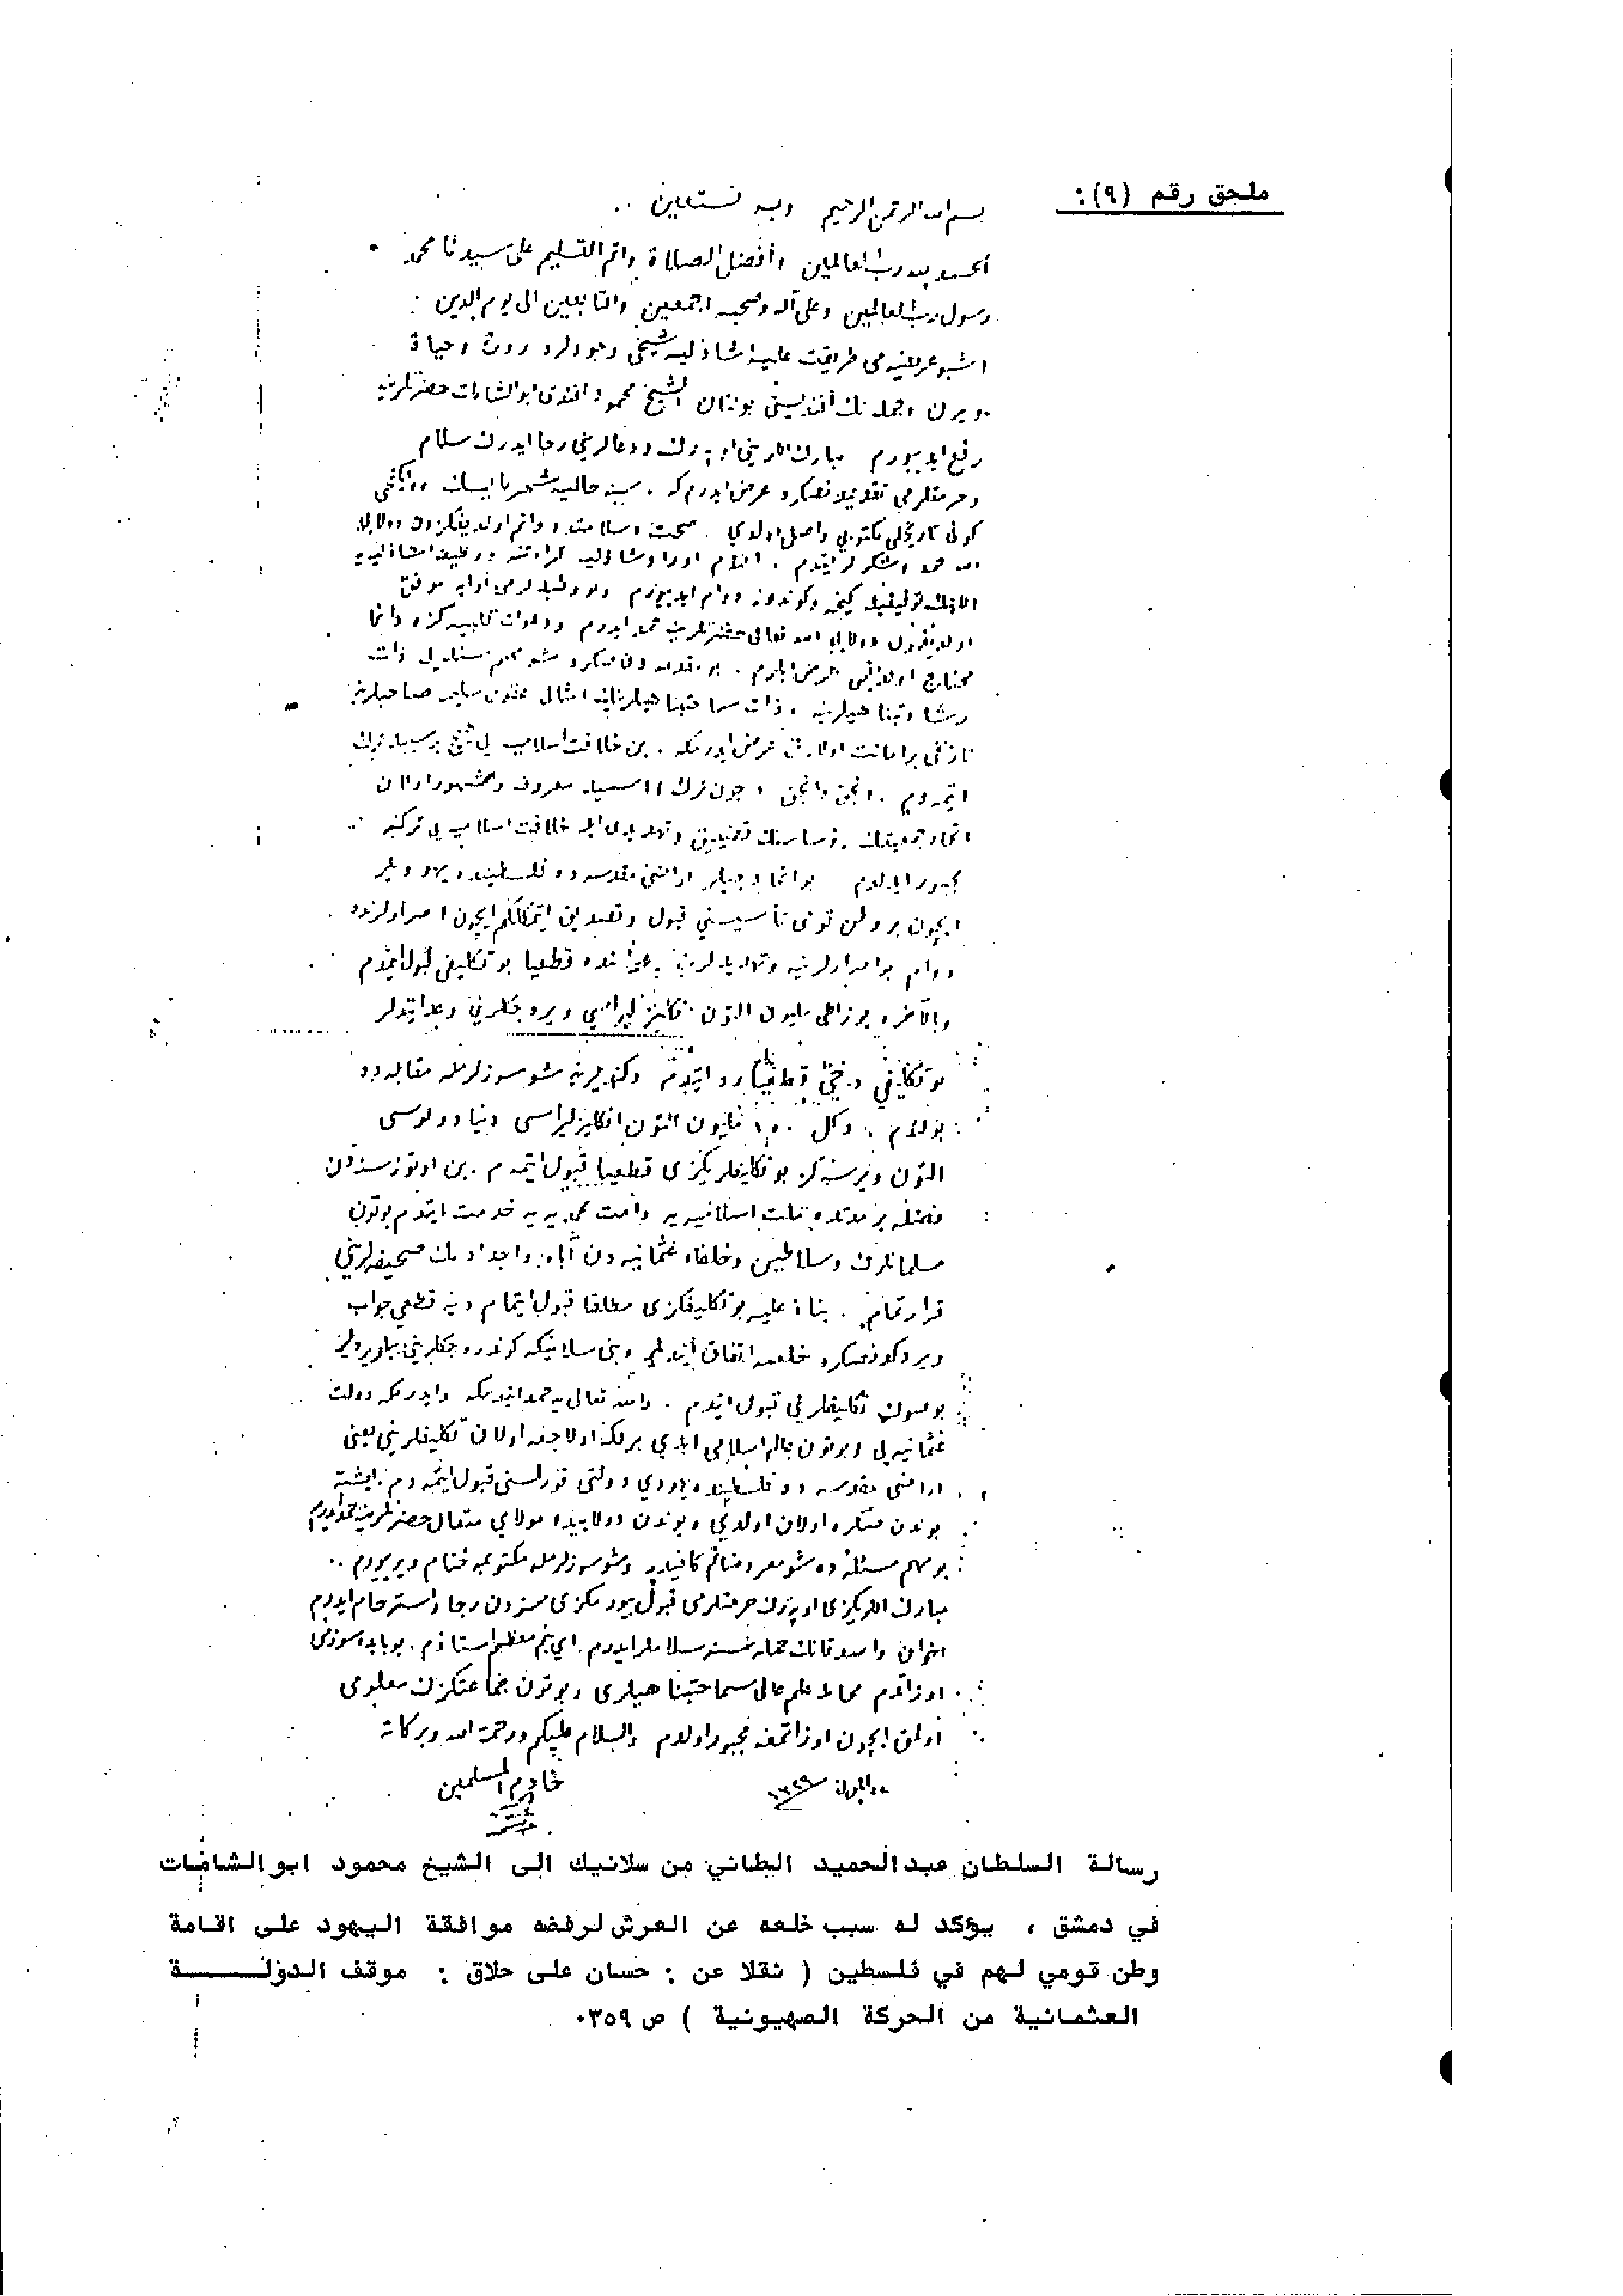 ملحق رقم (٩):
بسم الله الرحمن الرحيم وبه نستعين ..
الحمد لله رب العالمين وأفضل الصلاة واتم التسليم على سيدنا محمد
رسول رب العالمين وعلى آله وصحبه اجمعين والتابعين الى يوم الدين :
اشبو عريضه مى طريقت عليه شاذليه شيخى وجودلره روح وحياة
ويرن وجمله نك افنديسى بونان الشيخ محمود افندى ابو الشامات حضرتلرينه
رفع ايديورم مبارك اللرينى اوپه رك ودعالرينى رجا ايدرك سلام
وحرمتلرمى تقديمدنصكره عرض ايدرم كه . سنه حاليه شهر مايسك
كونى تاريخلى مكتوبى واصل اولدى . صحت وسلامتده دائم اولديغكزدن دولايى
الله حمد وشكرلر ايتدم . افندم اوراد شاذليه قرائتنه ووظيفه شاذليه يه
اللهك توفيقيله كيجه وكوندوز دوام ايديورم
اولديغمدن دولايى الله تعالى حضرتلرينه حمد ايدرم ودعوات قلبيه كزه دائما
محتاج اولديغمى عرض ايدرم . بو مقدمه دن صكره شو مهم مسئله يى ذات
رشادتپناهيلرينه وذات سماحتپناهيلرى امثالى عقول سليمه صاحبلرينه
تاريخى بر امانت اولارق عرض ايدرمكه . بن خلافت اسلاميه يى هيچ بر سببله ترك
ايتمدم . انجق وانجق ( جون ترك ) اسميله معروف ومشهور اولان
اتحاد جمعيتنك رؤساسنك تضييق وتهديدى ايله خلافت اسلاميه يى تركه
مجبور ايدلدم . بو اتحادجيلر اراضئ مقدسه ده فلسطينده يهوديلر
ايچون بر وطن قومى تأسيسنى قبول وتصديق ايتمكلكم ايچون اصرارلرنده
دوام بو اصرارلرينه وتهديدلرينه رغما بنده قطعيا بو تكليفى قبول ايتمدم
وبالآخره يوز اللى مليون التون انكليز ليراسى ويره جكلرينى وعد ايتديلر
بو تكليفى دخى قطعيا رد ايتدم وكنديلرينه شو سوزلرمله مقابله ده
بولندم . دكل ١٥٠ مليون التون انكليز ليراسى دنيا دولوسى
التون ويرسه كز بو تكليفكزى قطعيا قبول ايتمم . بن اوتوز سنه دن
فضله بر مدتده ملت اسلاميه يه وامت محمديه يه خدمت ايتدم بوتون
مسلمانلرك وسلاطين وخلفاء عثمانيه دن آباء واجدادمك صحيفه لرينى
قرارتمام . بناء عليه بو تكليفكزى مطلقا قبول ايتمام دييه قطعى جواب
ويردكدنصكره خلعمده اتفاق ايتديلر وبنى سلانيكه كوندره جكلرينى بيلديرديلر
بو صوك تكليفلرينى قبول ايتدم . والله تعالى يه حمد ايتدمكه وايدرمكه دولت
عثمانيه يى وبوتون عالم اسلامى ابدى بر لكه اولاجق اولان تكليفلرينى يعنى
اراضئ مقدسه ده فلسطينده يهودى دولتى قورلمسنى قبول ايتمدم . ايشته
بوندن صكره اولان اولدى وبوندن دولاييده مولاى متعال حضرتلرينه حمد ايدرم
بو مهم مسئله ده شو معروضاتم كافيدر وشو سوزلرمله مكتوبمه ختام ويريورم ..
مبارك اللريكزى اوپه رك حرمتلرمى قبول بيورمكزى سزدن رجا واسترحام ايدرم
اخوان واصدقانك جمله سنه سلاملر ايدرم . اى بنم معظم استاذم . بو بابده سوزمى
اوزاتدم محاط علم عالى سماحتپناهيلرى وبوتون جماعتكزك معلومى
اولمق ايچون اوزاتمغه مجبور اولدم والسلام عليكم ورحمت الله وبركاته
ايلول ١٣٢٩
خادم المسلمين
رسالة السلطان عبدالحميد الثاني من سلانيك الى الشيخ محمود ابو الشامات
في دمشق ، يؤكد له سبب خلعه عن العرش لرفضه موافقة اليهود على اقامة
وطن قومي لهم في فلسطين ( نقلا عن : حسان على حلاق : موقف الدولة
العثمانية من الحركة الصهيونية ) ص ٣٥٩.